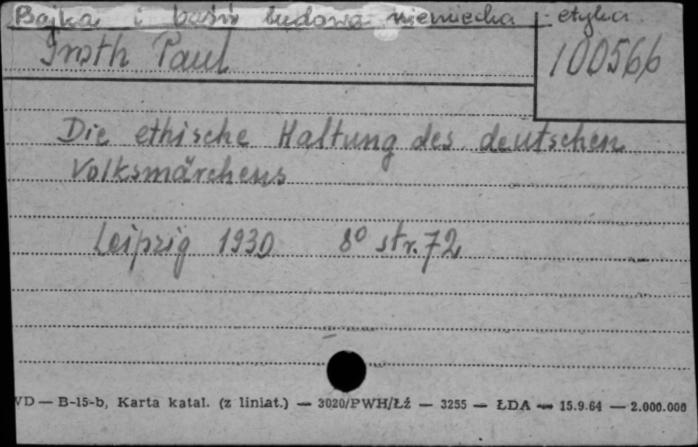 Bajka i baśń ludowa niemiecka etyka
Groth Paul
100566
Die ethische Haltung des deutschen
Volksmärchens
Leipzig 1930 8° str. 72
VD — B-15-b, Karta katal. (z liniat.) — 3020/PWH/Łź — 3255 — ŁDA — 15.9.64 — 2.000.000